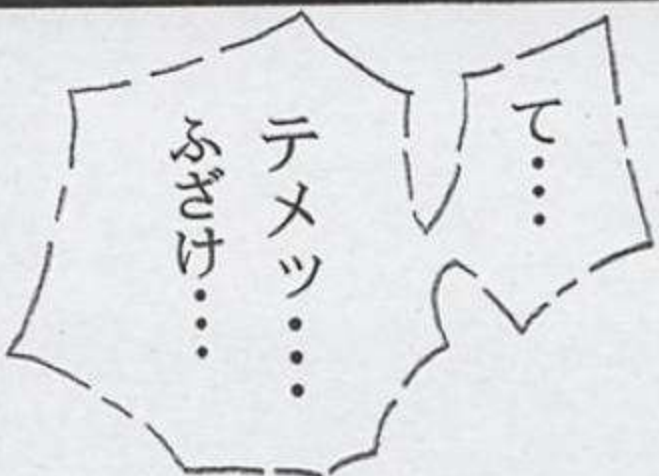 て・・・
テメッ・・・
ふざけ・・・